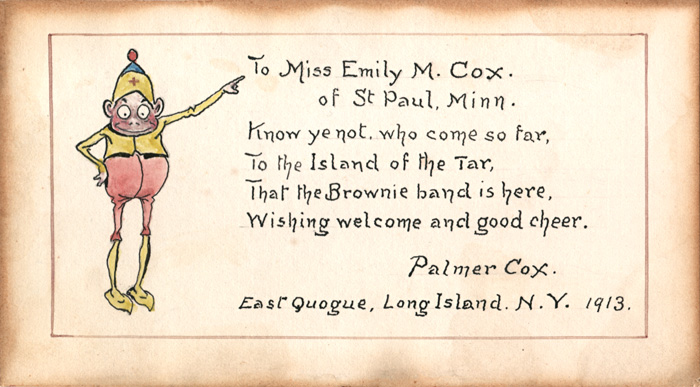 To Miss Emily M. Cox.
of St Paul, Minn.
Know ye not, who come so far,
To the Island of the Tar,
That the Brownie band is here,
Wishing welcome and good cheer.
Palmer Cox.
East Quogue, Long Island. N.Y. 1913.